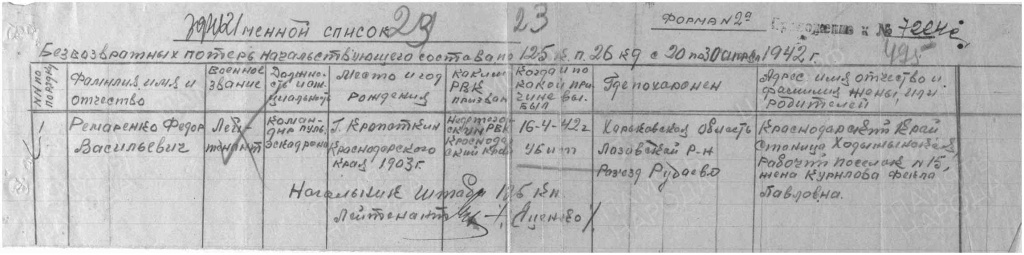 Именной список 23
23
Форма № 2а
к № 7224с
495
Безвозвратных потерь начальствующего состава по 125 к.п. 26 кд с 20 по 30 апреля 1942 г.
№№ по порядку
Фамилия имя и отчество
Военное звание
Должность и специальность
Место и год рождения
Каким РВК призван
Когда и по какой причине выбыл
Где похоронен
Адрес, имя отчество и фамилия жены, или родителей
1
Ремаренко Федор Васильевич
Лейтенант
Командир пул. эскадрона
Г. Кропоткин Краснодарского Края 1903 г.
РВК Краснодарский край
16-4-42 г. убит
Харьковская область Лозовский Р-н Разъезд Рудаево
Краснодарский Край
Станица
Рабочий поселок № 15,
жена Курилова Фекла
Павловна.
Начальник штаба 125 кп
Лейтенант / Луценко /